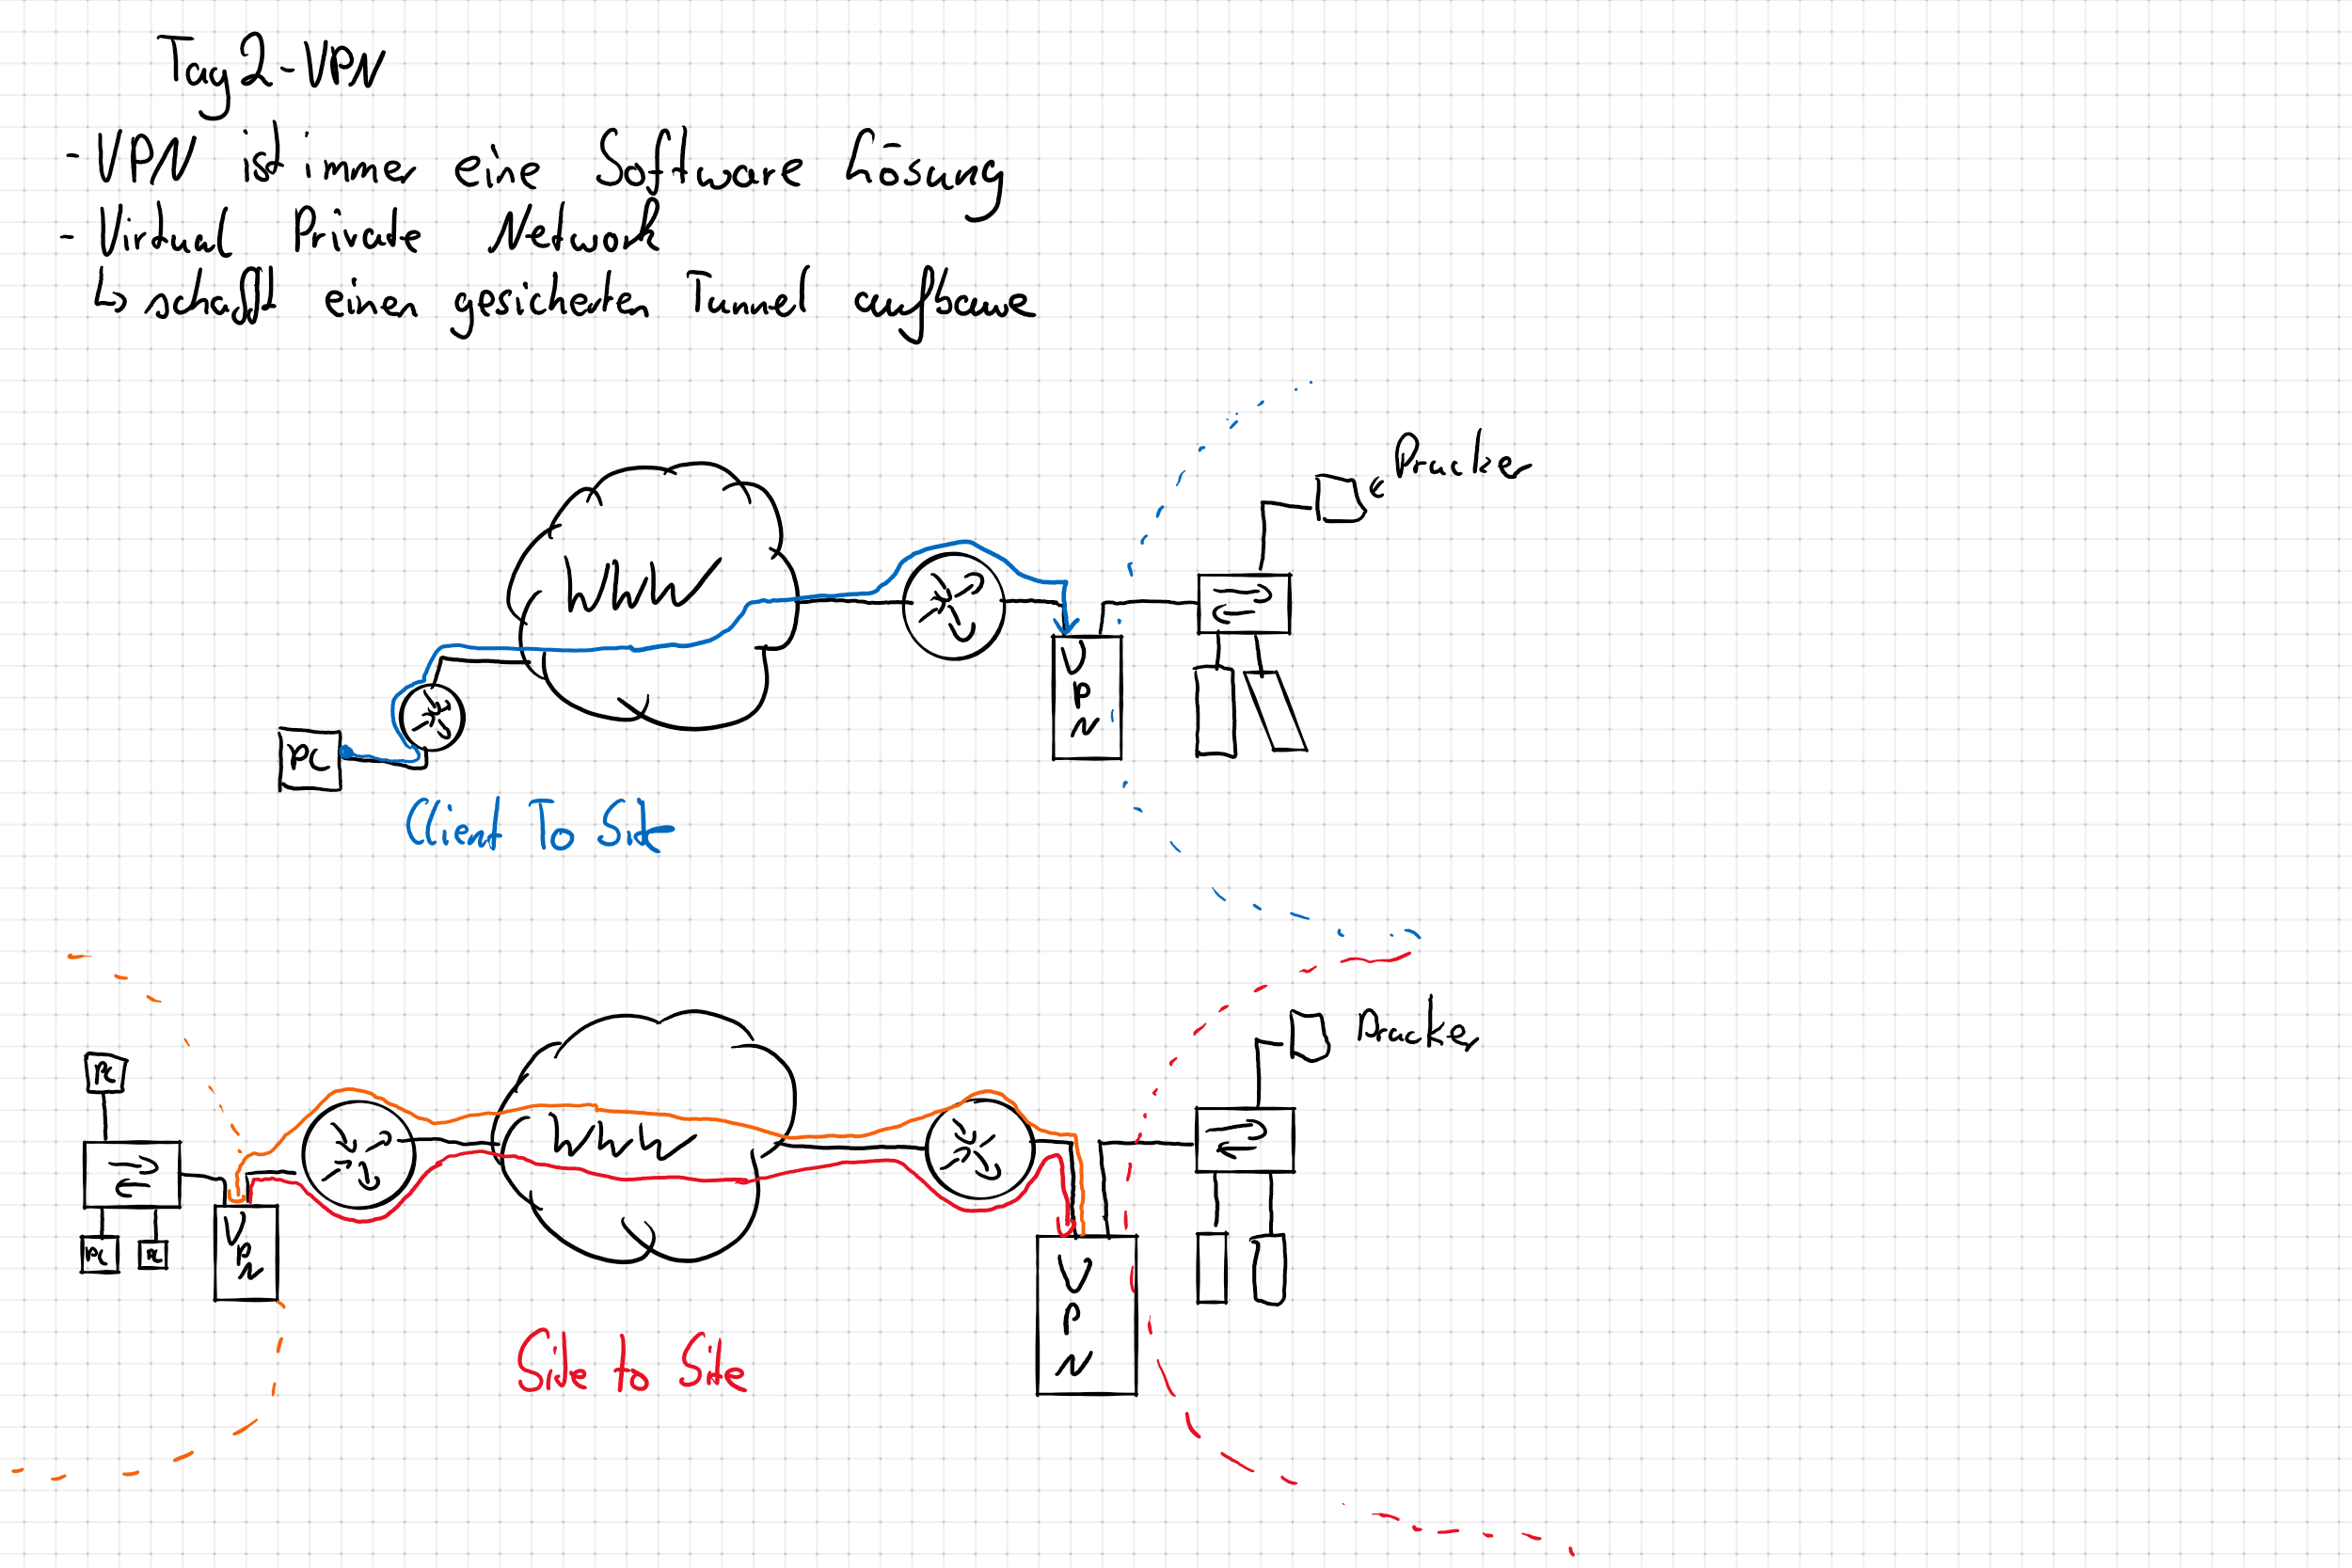 Tag 2 - VPN
- VPN ist immer eine Software Lösung
- Virtual Private Network
↳ schafft einen gesicherten Tunnel aufbaue
Drucker
WWW
VPN
PC
Client To Site
Drucker
PC
WWW
PC
PC
VPN
VPN
Site to Site